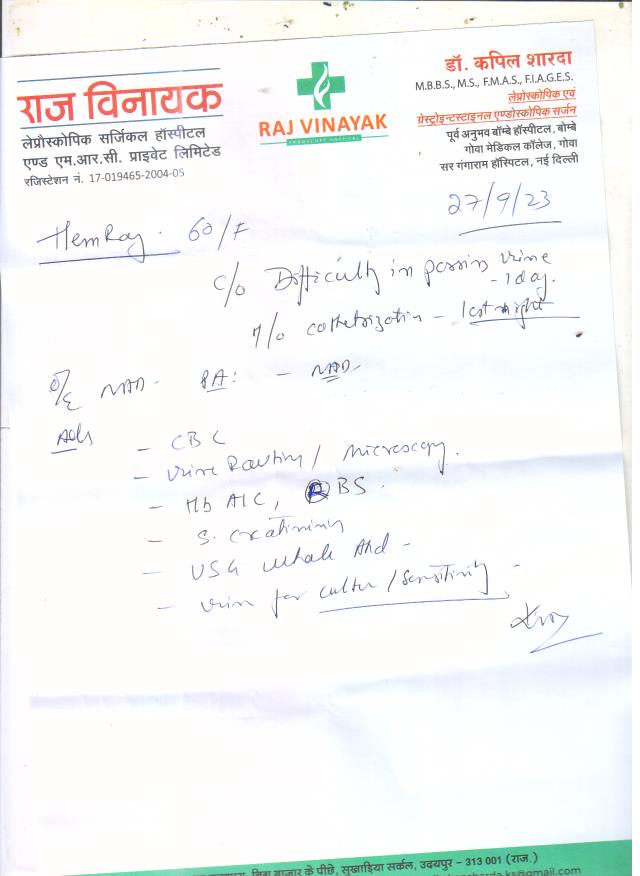 राज विनायक
लेप्रोस्कोपिक सर्जिकल हॉस्पीटल
एण्ड एम.आर.सी. प्राइवेट लिमिटेड
रजिस्टेशन नं. 17-019465-2004-05
RAJ VINAYAK
डॉ. कपिल शारदा
M.B.B.S., M.S., F.M.A.S., F.I.A.G.E.S.
लेप्रोस्कोपिक एवं
ग्रेस्ट्रोइन्टस्टाइनल एण्डोस्कोपिक सर्जन
पूर्व अनुभव बॉम्बे हॉस्पीटल, बोम्बे
गोवा मेडिकल कॉलेज, गोवा
सर गंगाराम हॉस्पिटल, नई दिल्ली
27/9/23
HemRaj. 60/F
C/o Difficulty in passing Urine
- 1 day.
H/o cathetrization - last night
O/E NAD. PA: - NAD
Adv
- CBC
- Urine Routine / Microscopy.
- Hb A1C, RBS.
- S. Creatinine
- USG whole Abd -
- Urine for Culture / Sensitivity -
बिग बाजार के पीछे, सुखाड़िया सर्कल, उदयपुर - 313 001 (राज.)